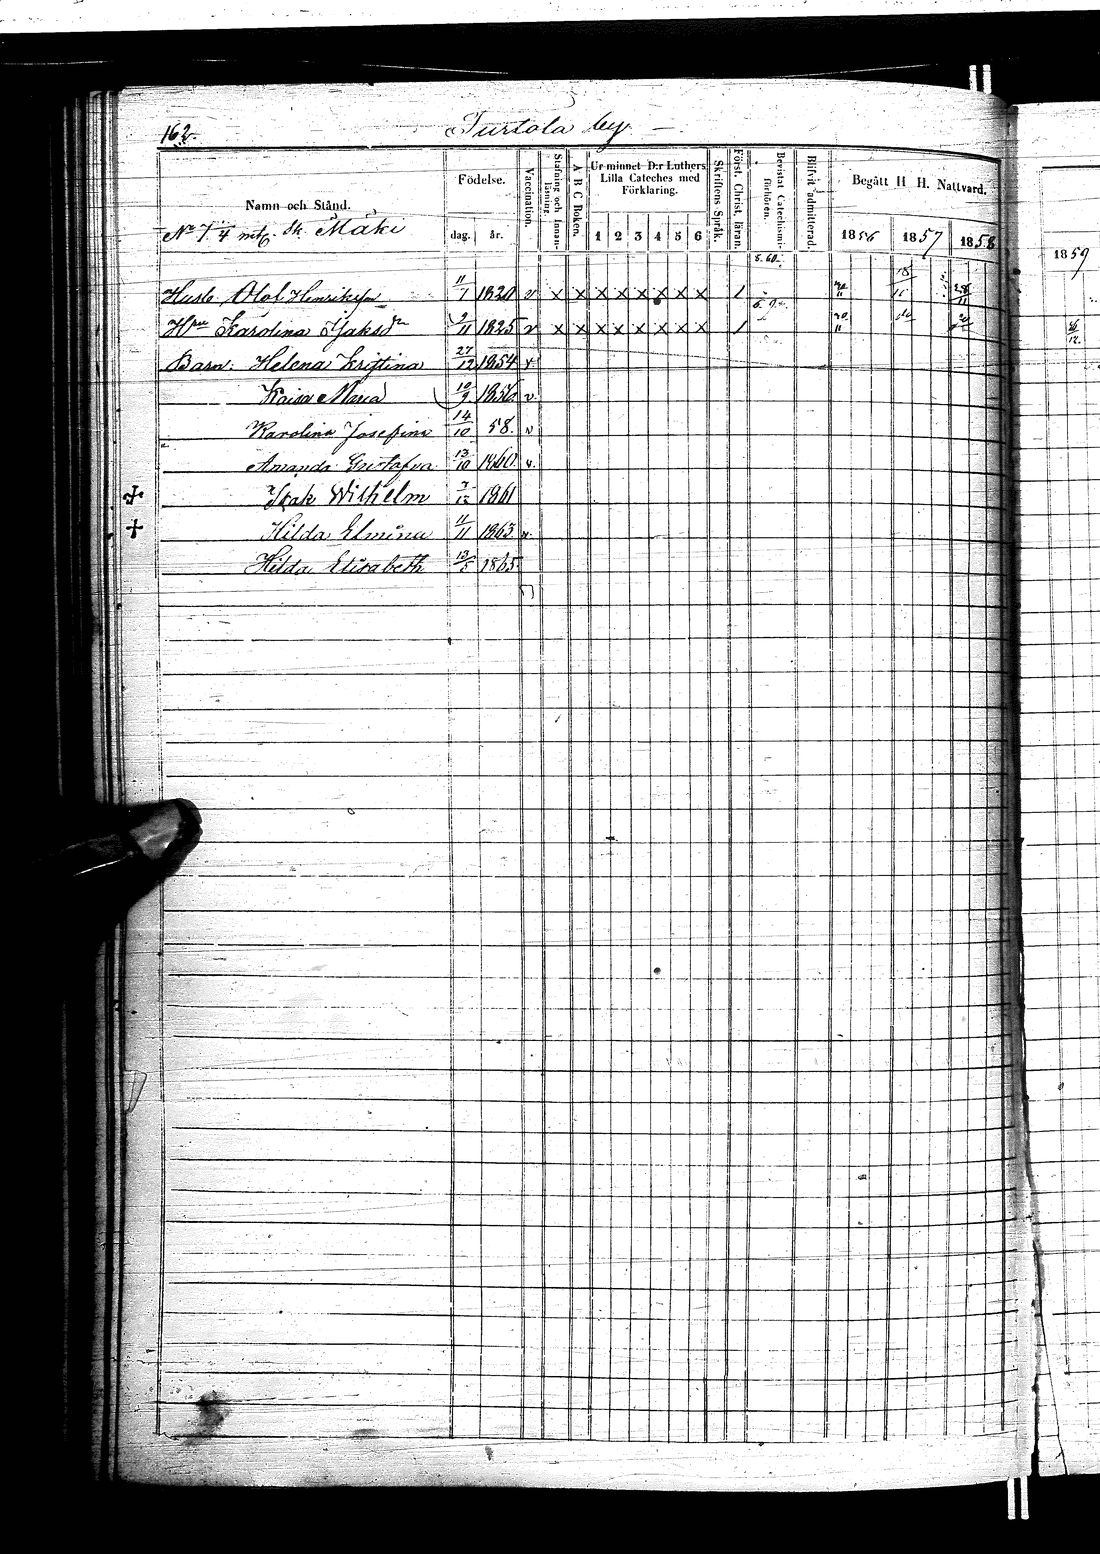 162.
Turtola by
Namn och Stånd.
Födelse.
dag. år.
Vaccination.
Stafning och Innanläsning
A B C Boken.
Ur minnet D:r Luthers Lilla Cateches med Förklaring.
1 2 3 4 5 6
Skriftens Språk.
Först. Christ. läran.
Bevistat Catechismiförhören.
Blifvit admitterad.
Begått H. H. Nattvard.
1856 1857 1858 1859
No 7 1/4 Mäki
Husb. Olof Henriksson 11/7 1820 v x x x x x x x x 1
Hru Karolina Isaksdr 9/11 1825 v x x x x x x x x 1
Barn: Helena Kristina 27/12 1854 v.
Kaisa Maria 10/9 1856 v.
Karolina Josefina 14/10 58. v
Amanda Gustafva 13/10 1860 v.
Isak Wilhelm 7/12 1861
Hilda Elmina 11/11 1863 v.
Hilda Elisabeth 13/5 1865